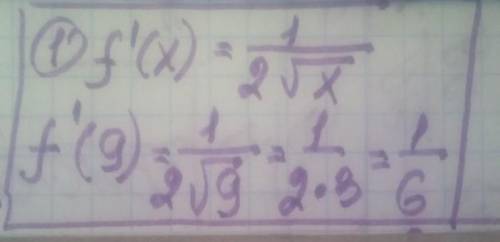 ① f'(x) = 1/(2√x)
f'(9) = 1/(2√9) = 1/(2·3) = 1/6